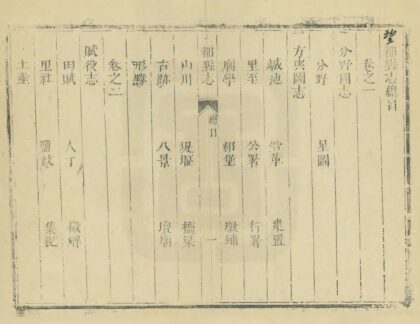 望都縣志總目
卷之一
分野圖志
分野 星圖
方輿圖志
城池 沿革 建置
里至 公署 行署
廟學 鄉堡 墩鋪
都縣志 總目 一
山川 堤堰 橋梁
古蹟 八景 壇廟
形勝
卷之二
賦役志
田賦 人丁 徵解
里社 鹽政 集
土產